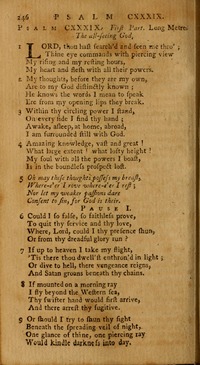 246 PSALM CXXXIX.
PSALM CXXXIX. First Part. Long Metre.
The all-seeing God.
1 LORD, thou hast search'd and seen me thro',
Thine eye commands with piercing view
My rising and my resting hours,
My heart and flesh with all their powers.
2 My thoughts, before they are my own,
Are to my God distinctly known;
He knows the words I mean to speak
Ere from my opening lips they break.
3 Within thy circling power I stand,
On every side I find thy hand;
Awake, asleep, at home, abroad,
I am surrounded still with God.
4 Amazing knowledge, vast and great!
What large extent! what lofty height!
My soul with all the powers I boast,
Is in the boundless prospect lost.
5 Oh may these thoughts possess my breast,
Where-e'er I rove where-e'er I rest;
Nor let my weaker passions dare
Consent to sin, for God is there.
PAUSE I.
6 Could I so false, so faithless prove,
To quit thy service and thy love,
Where, Lord, could I thy presence shun,
Or from thy dreadful glory run?
7 If up to heaven I take my flight,
'Tis there thou dwell'st enthron'd in light;
Or dive to hell, there vengeance reigns,
And Satan groans beneath thy chains.
8 If mounted on a morning ray
I fly beyond the Western sea,
Thy swifter hand would first arrive,
And there arrest thy fugitive.
9 Or should I try to shun thy sight
Beneath the spreading veil of night,
One glance of thine, one piercing ray
Would kindle darkness into day.